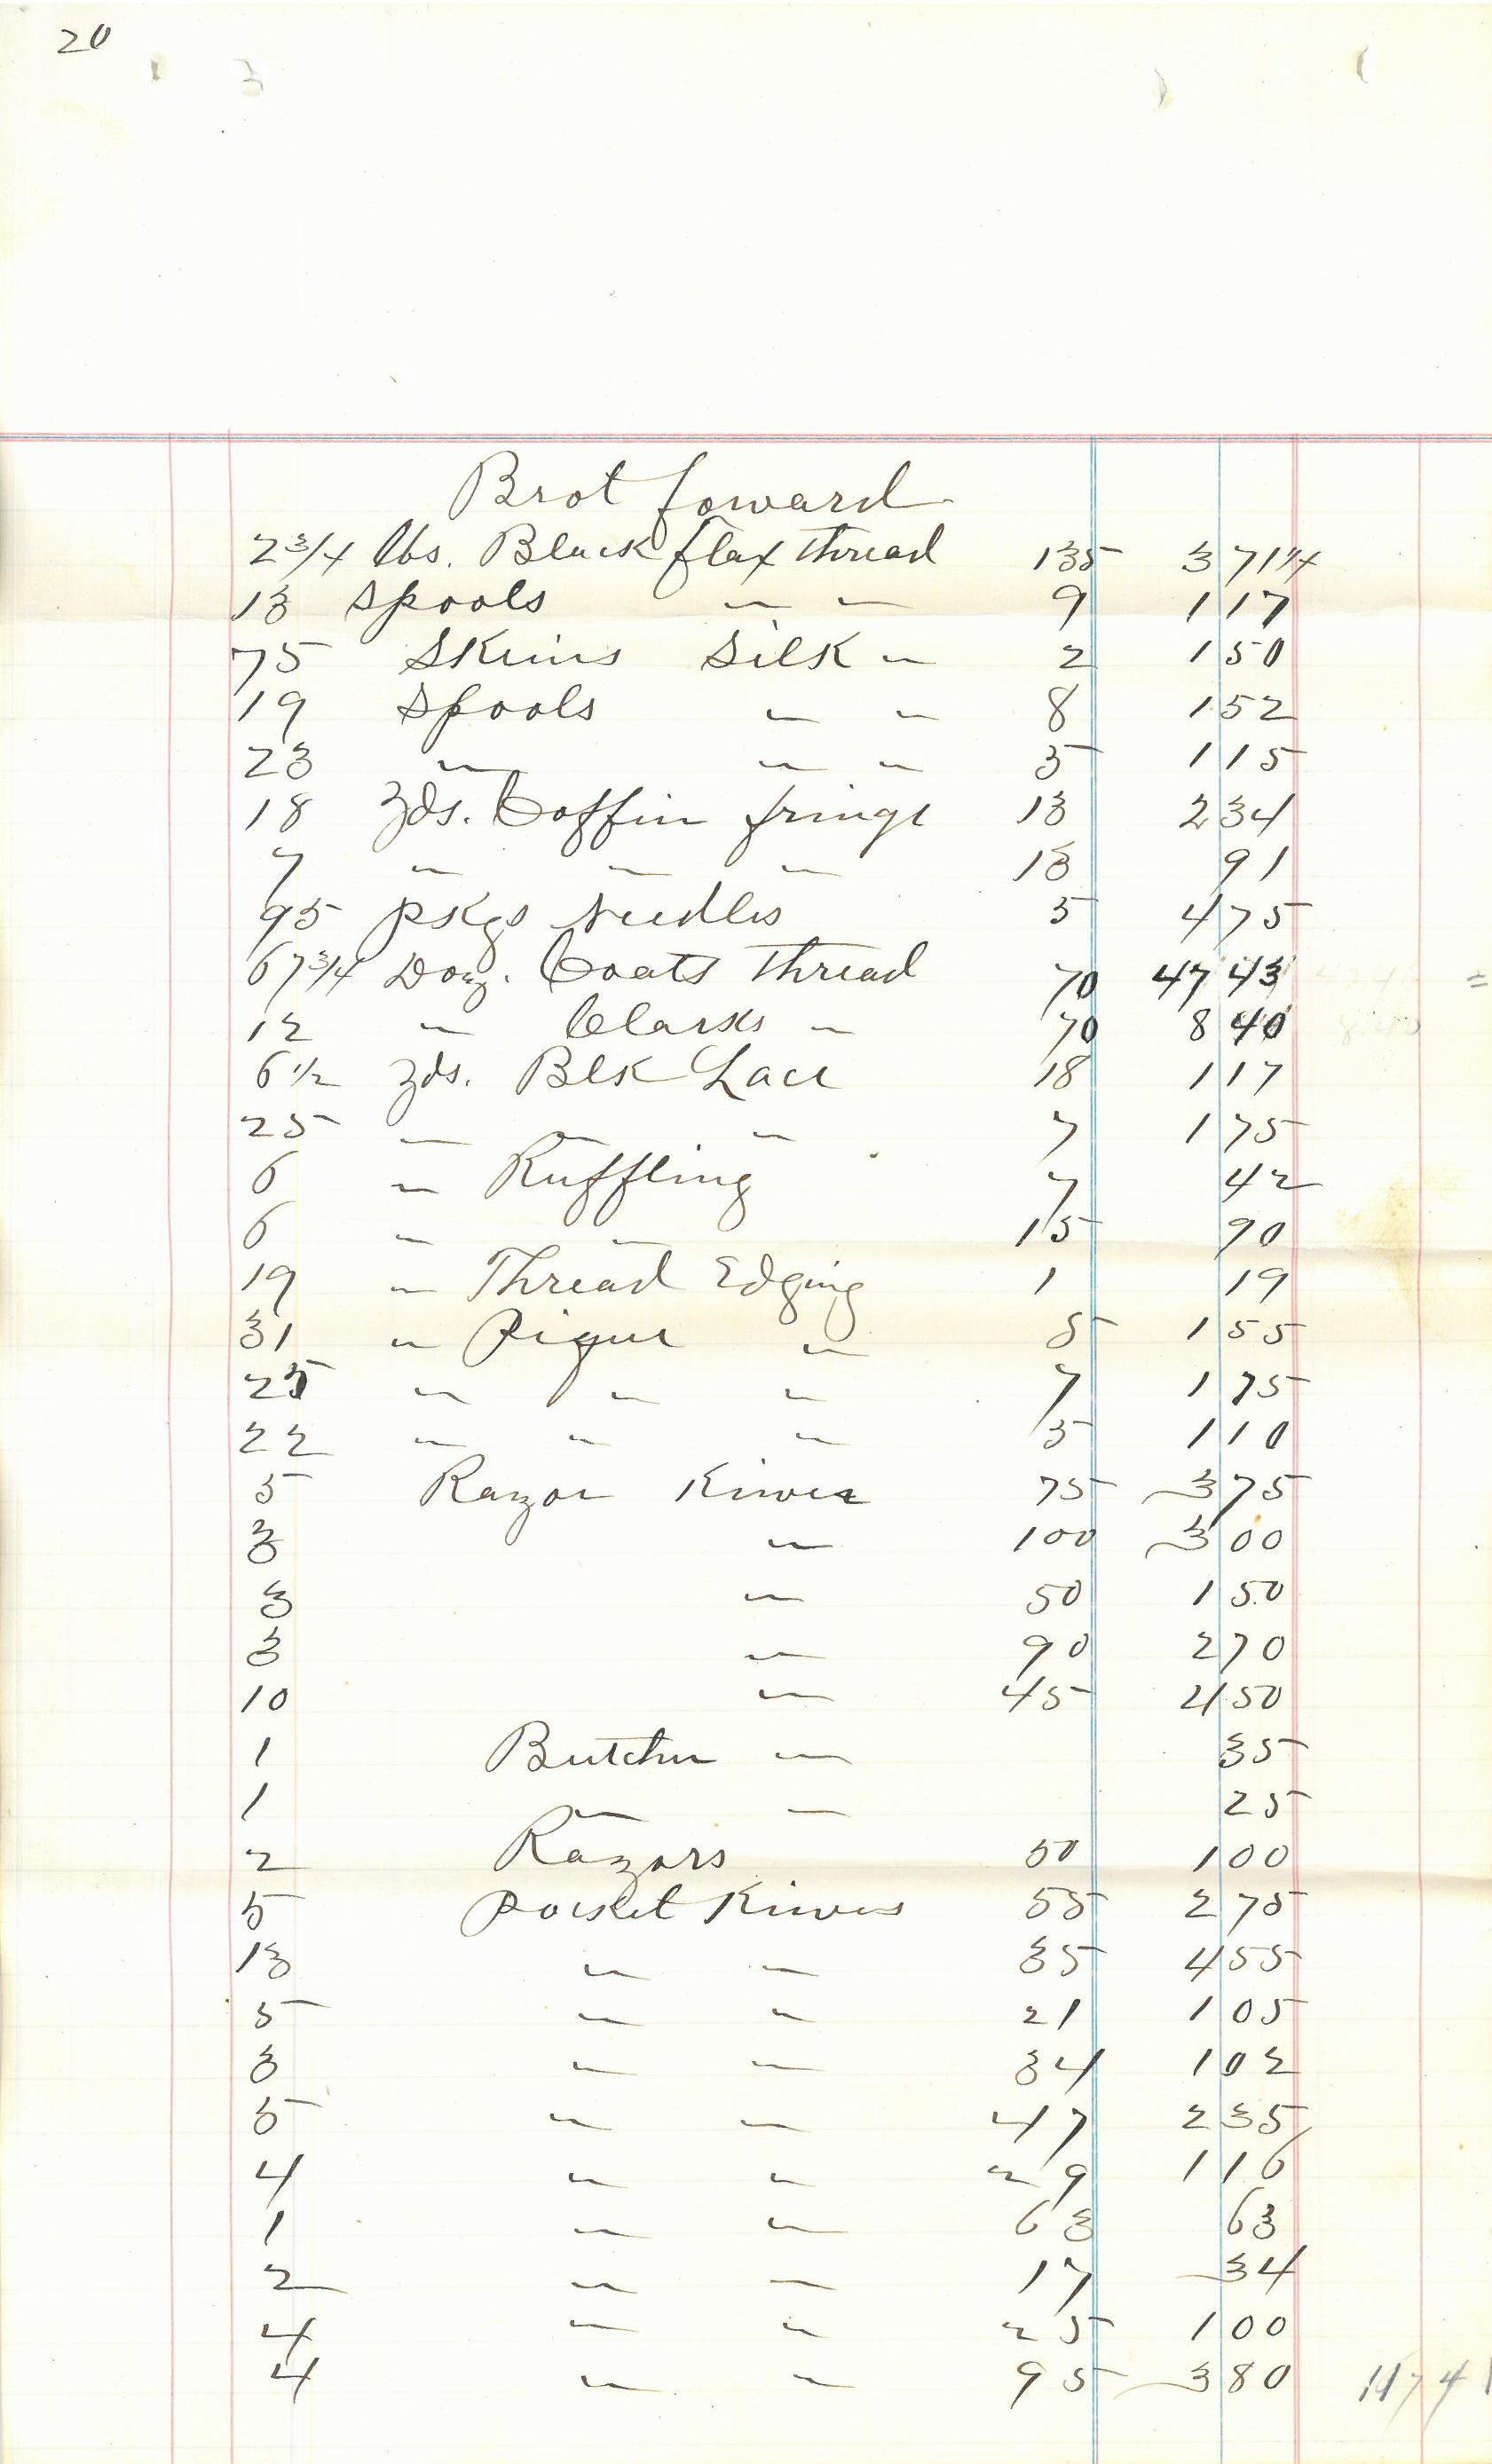 20
Brot foward
2 3/4 lbs. Black flax thread 135 3 71 1/4
13 spools " " 9 1 17
75 Skeins Silk " 2 1 50
19 Spools " " 8 1 52
23 " " " 5 1 15
18 yds. Coffin fringe 13 2 34
7 " " " 13 91
95 pkgs Needles 5 4 75
67 3/4 Doz. Coats Thread 70 47 43
12 " Clarks " 70 8 40
6 1/2 yds. Blk Lace 18 1 17
25 " " " 7 1 75
6 " Ruffling 7 42
6 " " 15 90
19 " Thread Edging 1 19
31 " Pique " 5 1 55
25 " " " 7 1 75
22 " " " 5 1 10
5 Razor Knives 75 3 75
3 " 100 3 00
3 " 50 1 50
3 " 90 2 70
10 " 45 4 50
1 Butcher " 35
1 " " 25
2 Razors 50 1 00
5 Pocket Knives 55 2 75
13 " " 35 4 55
5 " " 21 1 05
3 " " 34 1 02
5 " " 47 2 35
4 " " 29 1 16
1 " " 63 63
2 " " 17 34
4 " " 25 1 00
4 " " 95 3 80